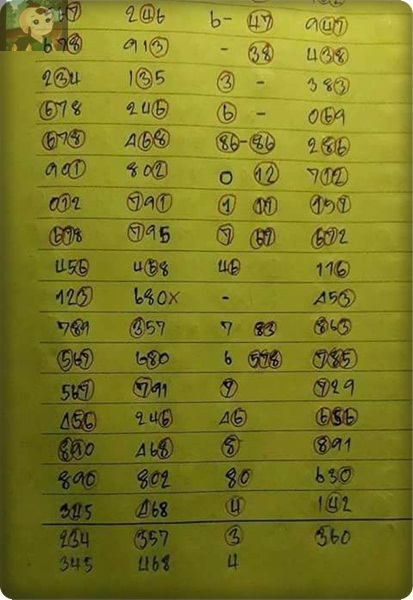 67 246 6- 47 947
678 913 - 38 438
234 135 3 - 383
678 246 6 - 069
678 468 86-86 286
901 802 0 12 712
012 791 1 11 151
678 795 7 67 672
456 468 46 116
123 680x - 453
789 357 7 83 863
567 680 6 578 785
567 791 7 729
456 246 46 656
890 468 8 891
890 802 80 630
345 468 4 142
234 357 3 360
345 468 4